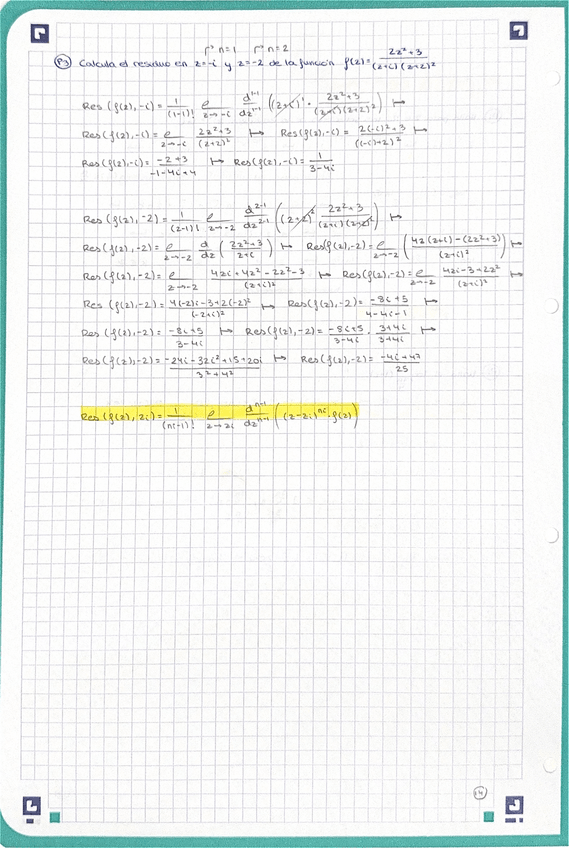 r→ n=1 r→ n=2
P3 Calcula el residuo en z=-i y z=-2 de la función f(z)= (2z²+3)/((z+i)(z+2)²)
Res(f(z),-i)= 1/(1-1)! ℓ z→-i d¹⁻¹/dz¹⁻¹ ((z+i)¹ · (2z²+3)/((z+i)(z+2)²)) ↦
Res(f(z),-i)= ℓ z→-i (2z²+3)/(z+2)² ↦ Res(f(z),-i)= (2(-i)²+3)/((-i)+2)² ↦
Res(f(z),-i)= (-2+3)/(-1-4i+4) ↦ Res(f(z),-i)= 1/(3-4i)
Res(f(z),-2)= 1/(2-1)! ℓ z→-2 d²⁻¹/dz²⁻¹ ((z+2)² (2z²+3)/((z+i)(z+2)²)) ↦
Res(f(z),-2)= ℓ z→-2 d/dz ((2z²+3)/(z+i)) ↦ Res(f(z),-2)= ℓ z→-2 ((4z(z+i)-(2z²+3))/(z+i)²) ↦
Res(f(z),-2)= ℓ z→-2 (4zi+4z²-2z²-3)/(z+i)² ↦ Res(f(z),-2)= ℓ z→-2 (4zi-3+2z²)/(z+i)² ↦
Res(f(z),-2)= (4(-2)i-3+2(-2)²)/(-2+i)² ↦ Res(f(z),-2)= (-8i+5)/(4-4i-1)
Res(f(z),-2)= (-8i+5)/(3-4i) ↦ Res(f(z),-2)= (-8i+5)/(3-4i) · (3+4i)/(3+4i) ↦
Res(f(z),-2)= (-24i-32i²+15+20i)/(3²+4²) ↦ Res(f(z),-2)= (-4i+47)/25
Res(f(z),zi)= 1/(ni-1)! ℓ z→zi dⁿ⁻¹/dzⁿ⁻¹ ((z-zi)ⁿⁱ · f(z))
14